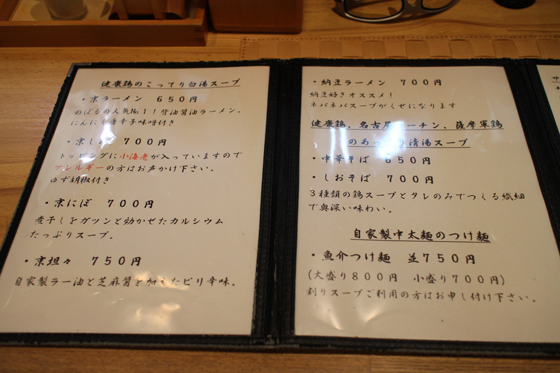 健康鶏のこってり白湯スープ
・京ラーメン 650円
のばるの人気No.1!背油醤油ラーメン。
にんにく唐辛子味噌付き
・京し 700円
トッピングに小海老が入っていますので
アレルギーの方はお声かけ下さい。
ゆず胡椒付き
・京にぼ 700円
煮干しをガツンと効かせたカルシウム
たっぷりスープ。
・京坦々 750円
自家製ラー油と芝麻醤を加えたピリ辛味。
・納豆ラーメン 700円
納豆好きオススメ!
ネバネバスープがくせになります
健康鶏、名古屋コーチン、薩摩軍鶏
のあっ 清湯スープ
・中華そば 650円
・しおそば 700円
3種類の鶏スープとタレのみでつくる繊細
で奥深い味わい。
自家製中太麺のつけ麺
・魚介つけ麺 並750円
(大盛り800円 小盛り700円)
割りスープご利用の方はお申し付け下さい。